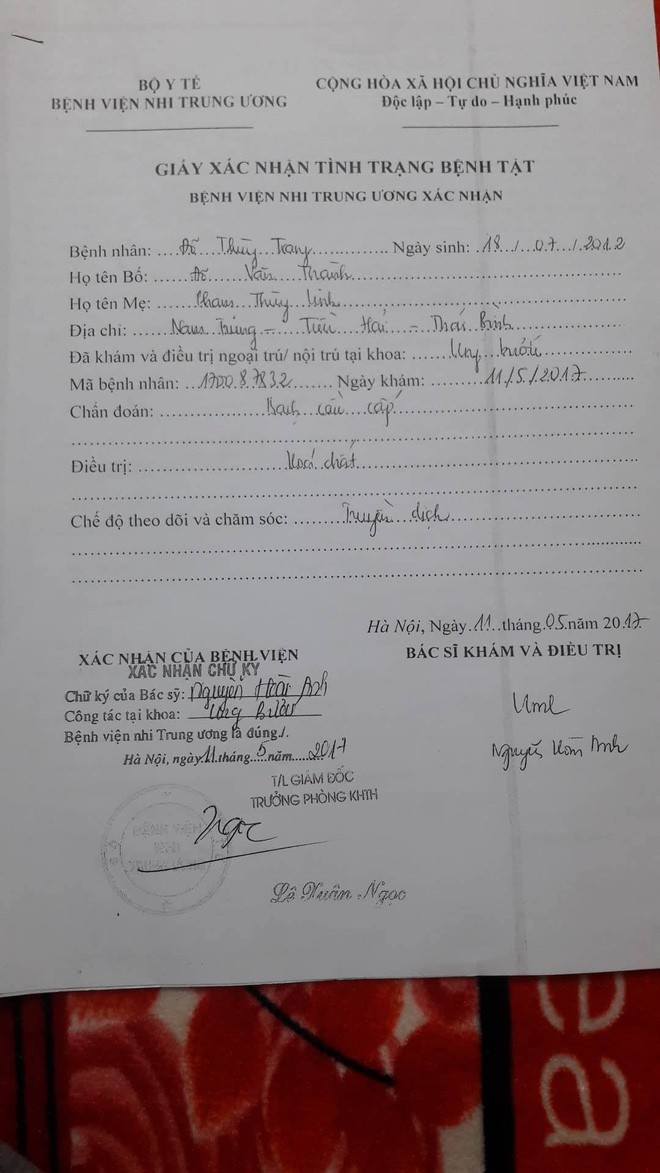 BỘ Y TẾ
BỆNH VIỆN NHI TRUNG ƯƠNG
CỘNG HÒA XÃ HỘI CHỦ NGHĨA VIỆT NAM
Độc lập – Tự do – Hạnh phúc
GIẤY XÁC NHẬN TÌNH TRẠNG BỆNH TẬT
BỆNH VIỆN NHI TRUNG ƯƠNG XÁC NHẬN
Bệnh nhân: Đỗ Thùy Trang Ngày sinh: 18 / 07 / 2012
Họ tên Bố: Đỗ Văn Thành
Họ tên Mẹ: Phan Thùy Linh
Địa chỉ: Nam Trung – Tiền Hải – Thái Bình
Đã khám và điều trị ngoại trú/ nội trú tại khoa: Ung bướu
Mã bệnh nhân: 170087832 Ngày khám: 11/5/2017
Chẩn đoán: Bạch cầu cấp
Điều trị: Hoá chất
Chế độ theo dõi và chăm sóc: Truyền dịch
Hà Nội, Ngày 11 tháng 05 năm 2017
XÁC NHẬN CỦA BỆNH VIỆN
BÁC SĨ KHÁM VÀ ĐIỀU TRỊ
XÁC NHẬN CHỮ KÝ
Chữ ký của Bác sỹ: Nguyễn Hoài Anh
Công tác tại khoa: Ung Bướu
Bệnh viện nhi Trung ương là đúng./.
Hà Nội, ngày 11 tháng 5 năm 2017
Nguyễn Hoài Anh
T/L GIÁM ĐỐC
TRƯỞNG PHÒNG KHTH
Ngọc
Lê Xuân Ngọc
ea